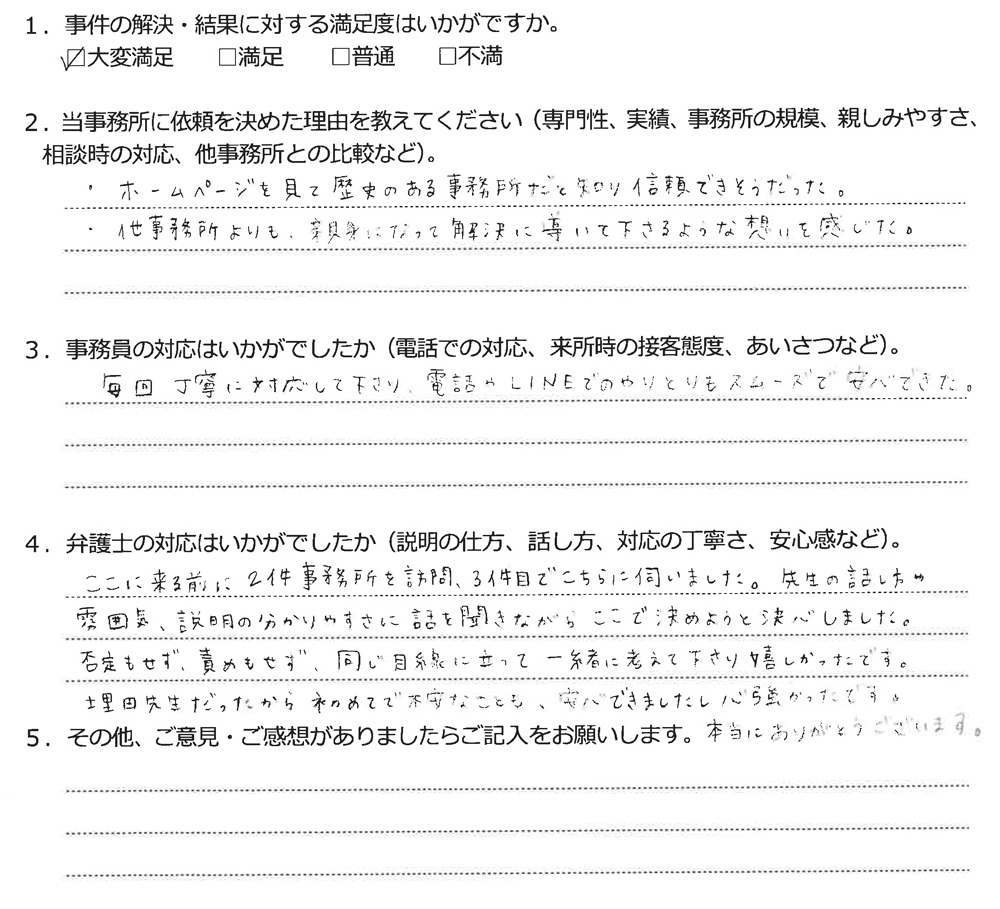 1．事件の解決・結果に対する満足度はいかがですか。
☑大変満足　□満足　□普通　□不満
2．当事務所に依頼を決めた理由を教えてください（専門性、実績、事務所の規模、親しみやすさ、
相談時の対応、他事務所との比較など）。
・ホームページを見て歴史のある事務所だと知り信頼できそうだった。
・他事務所よりも、親身になって解決に導いて下さるような想いを感じた。
3．事務員の対応はいかがでしたか（電話での対応、来所時の接客態度、あいさつなど）。
毎回丁寧に対応して下さり、電話やLINEでのやりとりもスムーズで安心できた。
4．弁護士の対応はいかがでしたか（説明の仕方、話し方、対応の丁寧さ、安心感など）。
ここに来る前に2件事務所を訪問、3件目でこちらに伺いました。先生の話し方や
雰囲気、説明の分かりやすさに話を聞きながらここで決めようと決心しました。
否定もせず、責めもせず、同じ目線に立って一緒に考えて下さり嬉しかったです。
埋田先生だったから初めてで不安なことも、安心できましたし心強かったです。
5．その他、ご意見・ご感想がありましたらご記入をお願いします。本当にありがとうございます。